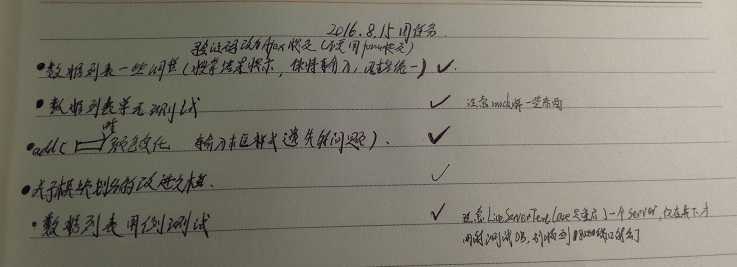 2016.8.15周任务
验证码改为Ajax模式(不使用form模式)
•数据列表一些调整(搜索结果提示, 保持输入, 风格统一) ✓.
•数据列表单元测试 ✓ 注意mock掉一些东西
•add( 颜色变化 输入框样式遗失的问题). ✓
•关于模块划分的改进文档. ✓
•数据列表用例测试 ✓ 注意LiveServerTestCase只是启了一个Server, 仅在其下才
用到测试DB, 别搞到8000端口就行了